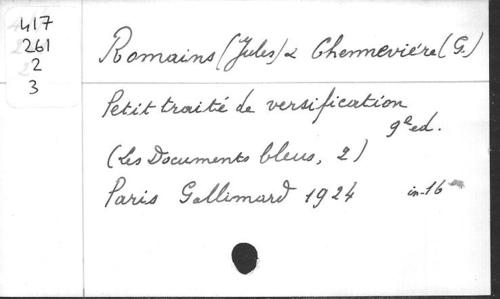 417
261
2
3
Romains (Jules) & Chennevière (G.)
Petit traité de versification
9e ed.
(Les Documents bleus, 2)
Paris Gallimard 1924 in-16